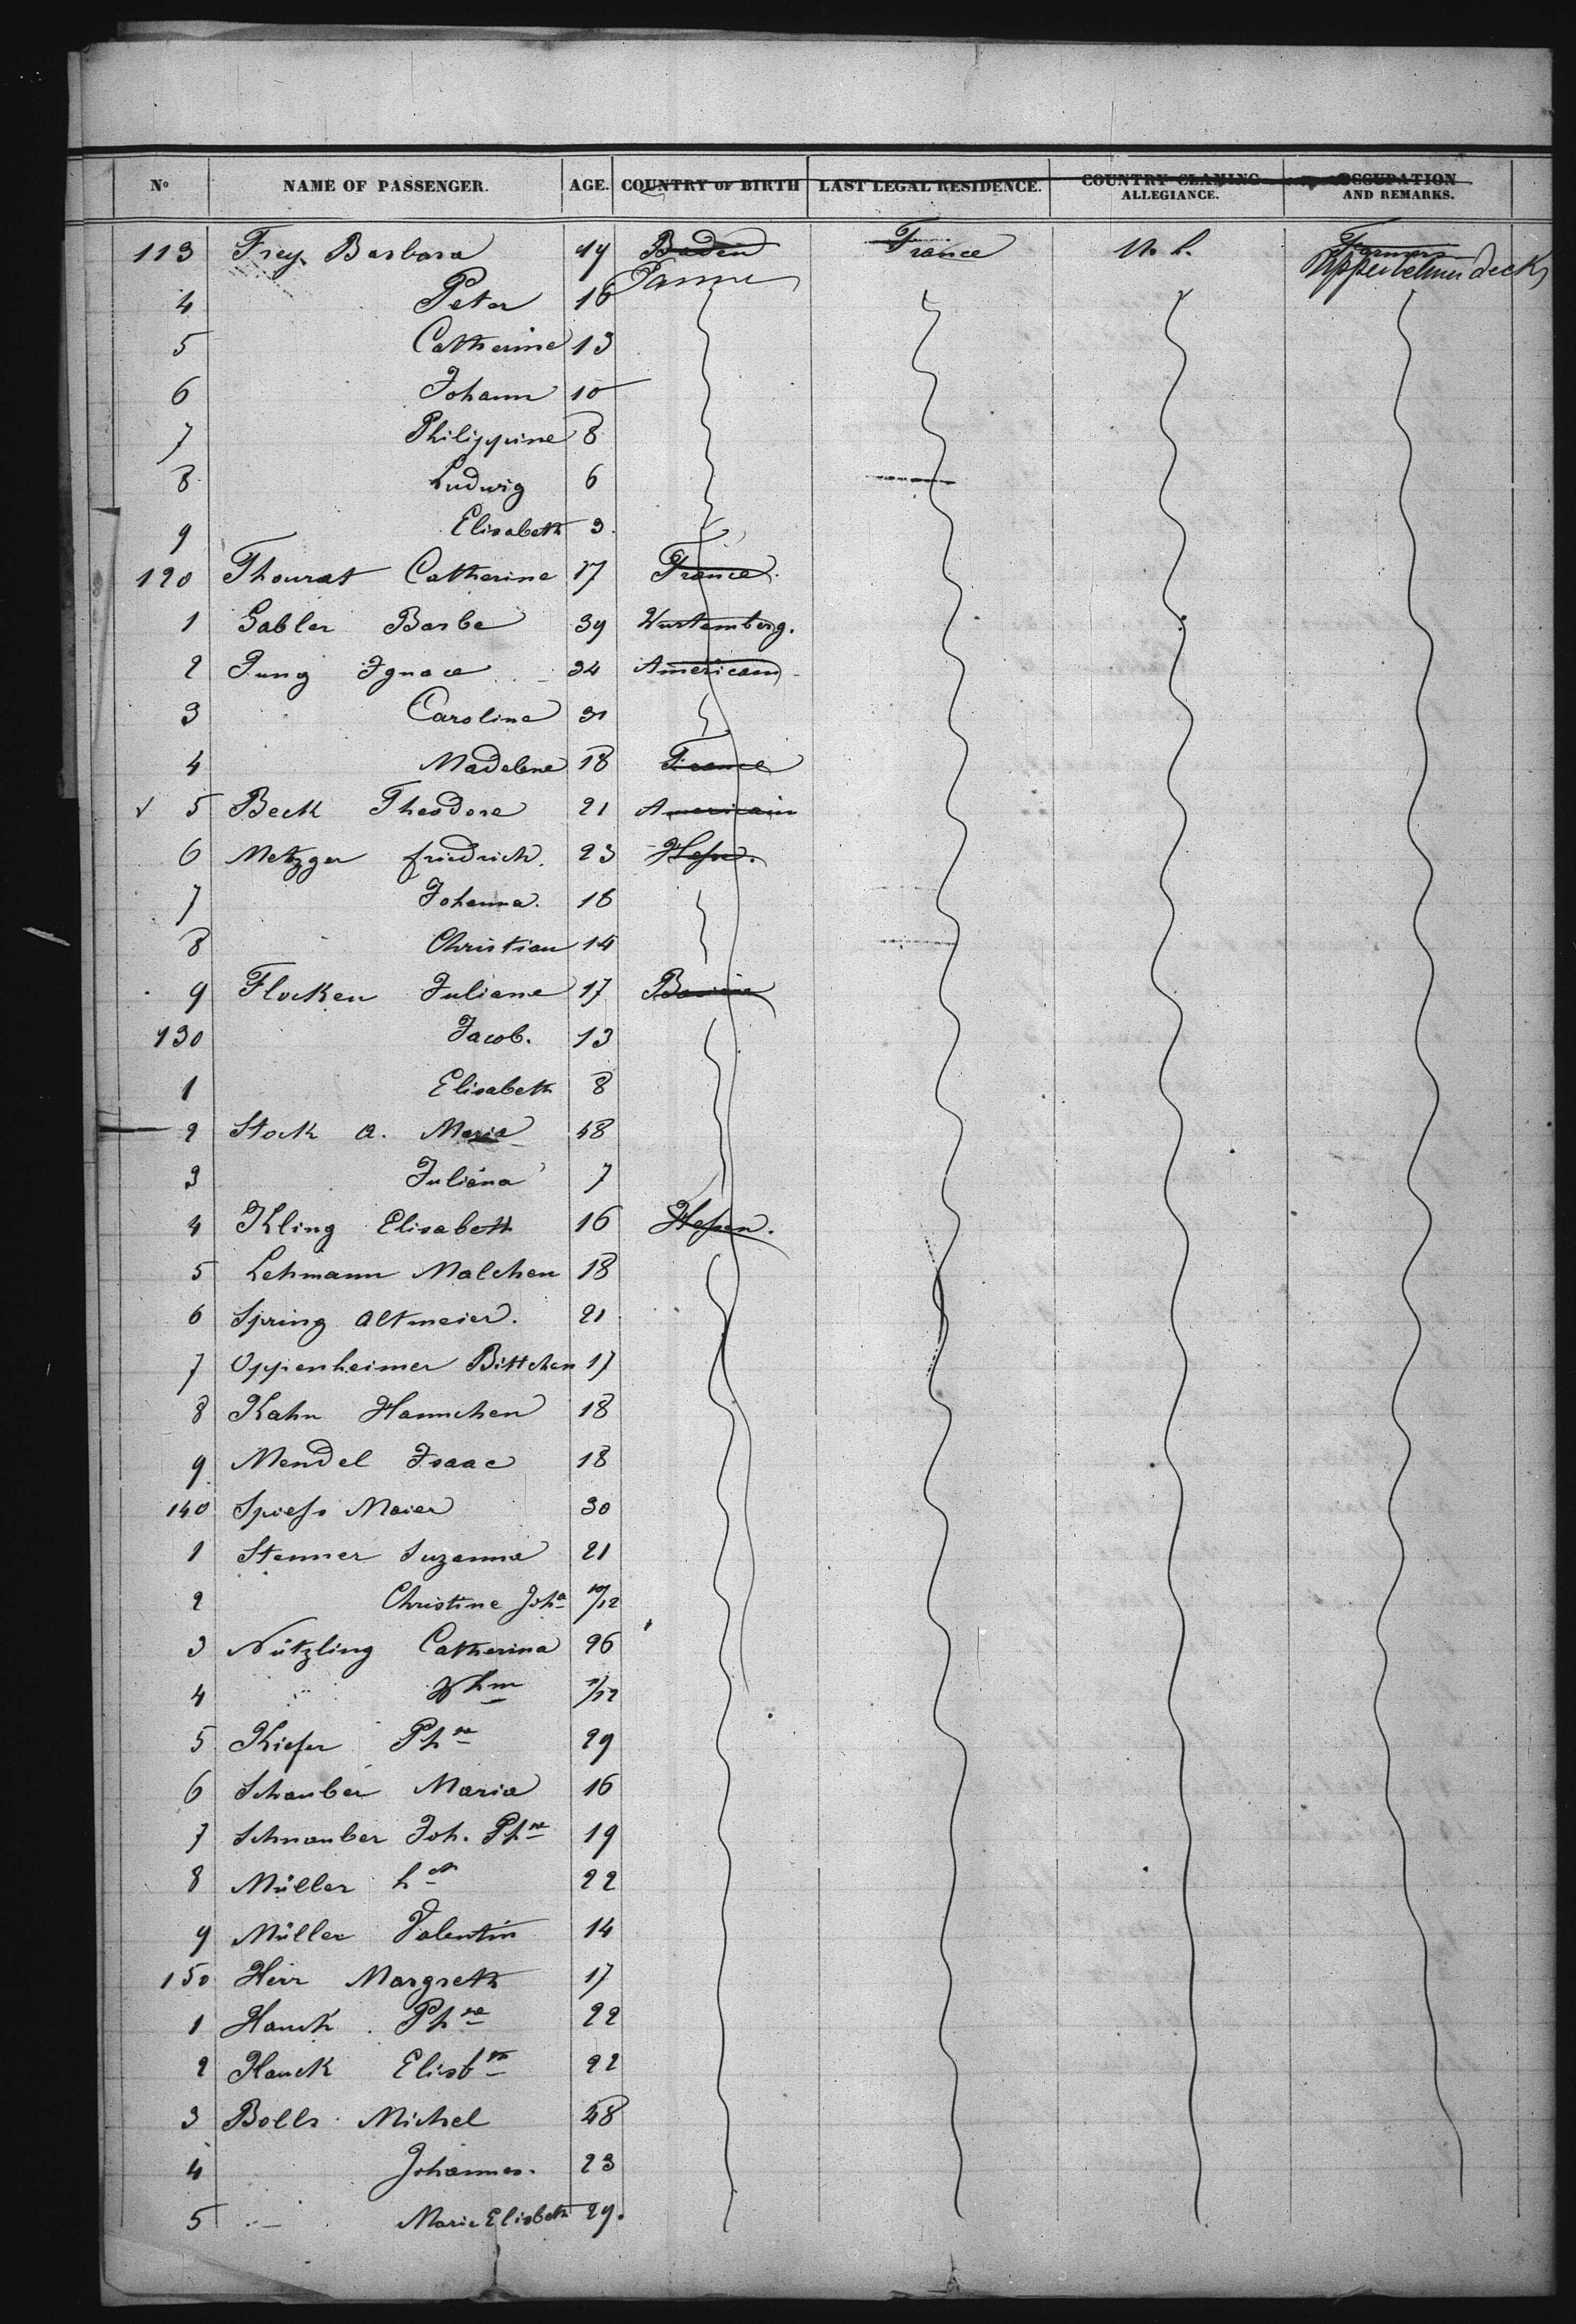 No NAME OF PASSENGER. AGE. COUNTRY OF BIRTH LAST LEGAL RESIDENCE. COUNTRY CLAMING ALLEGIANCE. OCCUPATION AND REMARKS.
113 Frey Barbara 44 Baden France Farmers
4 Peter 16
5 Catherine 13
6 Johann 10
7 Philippine 8
8 Ludwig 6
9 Elisabeth 3
120 Thourat Catherine 17 France
1 Gabler Barbe 39 Wurtemberg.
2 Jung Ignace 34 Americain
3 Caroline 31
4 Madelene 18 France
5 Beck Theodore 21 Americain
6 Metzger friedrich. 23 Hesse.
7 Johanna. 16
8 Christian 14
9 Flocken Juliane 17 Baviere
130 Jacob. 13
1 Elisabeth 8
2 Stock a. Maria 48
3 Juliana 7
4 Kling Elisabeth 16 Hessen.
5 Lehmann Malchen 18
6 Spring altmeier. 21
7 Oppenheimer Bittchen 17
8 Kahn Hannchen 18
9 Mendel Isaac 18
140 Spiess Maier 30
1 Stenner Suzanna 21
2 Christine Joha 10/12
3 Nützling Catherina 26
4 Whm
5 Kiefer Phne 29
6 Schauber Maria 16
7 Schnauber Joh. Phne 19
8 Müller 22
9 Müller Valentin 14
150 Herr Margreth 17
1 Hauck Phne 22
2 Hauck Elisbth 22
3 Bolls Michel 48
4 Johannes. 23
5 Marie Elisbeth 29.